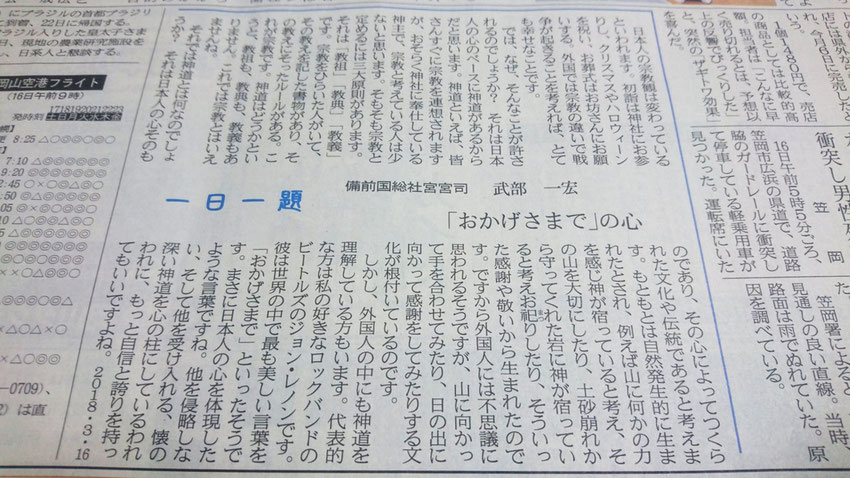 店には県外から
店。今月6日に発売
1個1480円で、売店
の商品としては比較的高
額。担当者は「こんなに早
く売り切れるとは。予想以
上の反響でびっくりした」
と、突然の"ザギーワ効果"
を喜んだ。
衝突し男性死
笠岡
16日午前5時5分ごろ、
笠岡市広浜の県道で、道路
脇のガードレールに衝突し
て停車している軽乗用車が
見つかった。運転席にいた
笠岡署によると
見通しの良い直線。当時、
路面は雨でぬれていた。原
因を調べている。
一日一題
「おかげさまで」の心
備前国総社宮宮司 武部 一宏
日本人の宗教観は変わっている
といわれます。初詣は神社にお参
りし、クリスマスやハロウィーン
を祝い、お葬式はお坊さんにお願
いする。外国では宗教の違いで戦
争が起きることを考えれば、とて
も幸せなことです。
では、なぜ、そんなことが許さ
れるのでしょうか？ それは日本
人の心のベースに神道があるから
だと思います。神道といえば、皆
さんすぐに宗教を連想されます
が、おそらく神社に奉仕している
神主で、宗教と考えている人は少
ないと思います。そもそも宗教と
定めるには三大原則があります。
それは「教祖」「教典」「教義」
です。宗教をひらいた人がいて、
その教えを記した書物があり、そ
の教えにそったルールがある。こ
れが宗教です。神道はどうかとい
うと、教祖も、教典も、教義もあ
りません。これでは宗教とはいえ
ませんね。
それでは神道とは何なのでしょ
うか？ それは日本人の心そのも
のであり、その心によってつくら
れた文化や伝統であると考えま
す。もともとは自然発生的に生ま
れたとされ、例えば山に何かの力
を感じ神が宿っていると考え、そ
の山を大切にしたり、土砂崩れか
ら守ってくれた岩に神が宿ってい
ると考えお祀りしたり、そういっ
た感謝や敬いから生まれたので
す。ですから外国人には不思議に
思われるそうですが、山に向かっ
て手を合わせてみたり、日の出に
向かって感謝をしてみたりする文
化が根付いているのです。
しかし、外国人の中にも神道を
理解している方もいます。代表的
な方は私の好きなロックバンドの
ビートルズのジョン・レノンです。
彼は世界の中で最も美しい言葉を
「おかげさまで」といったそうで
す。まさに日本人の心を体現した
ような言葉ですね。他を侵略しな
い、そして他を受け入れる、懐の
深い神道を心の柱にしているわれ
われに、もっと自信と誇りを持っ
てもいいですよね。 2018・3・16
にブラジルの首都ブラジリ
到着、22日に帰国する。
ラジル入りした皇太子さま
日、現地の農業研究施設を
、日系人と懇談する。
岡山空港フライト
(16日午前9時)
発時刻
17 18 19 20 21 22 23
土日月火水木金